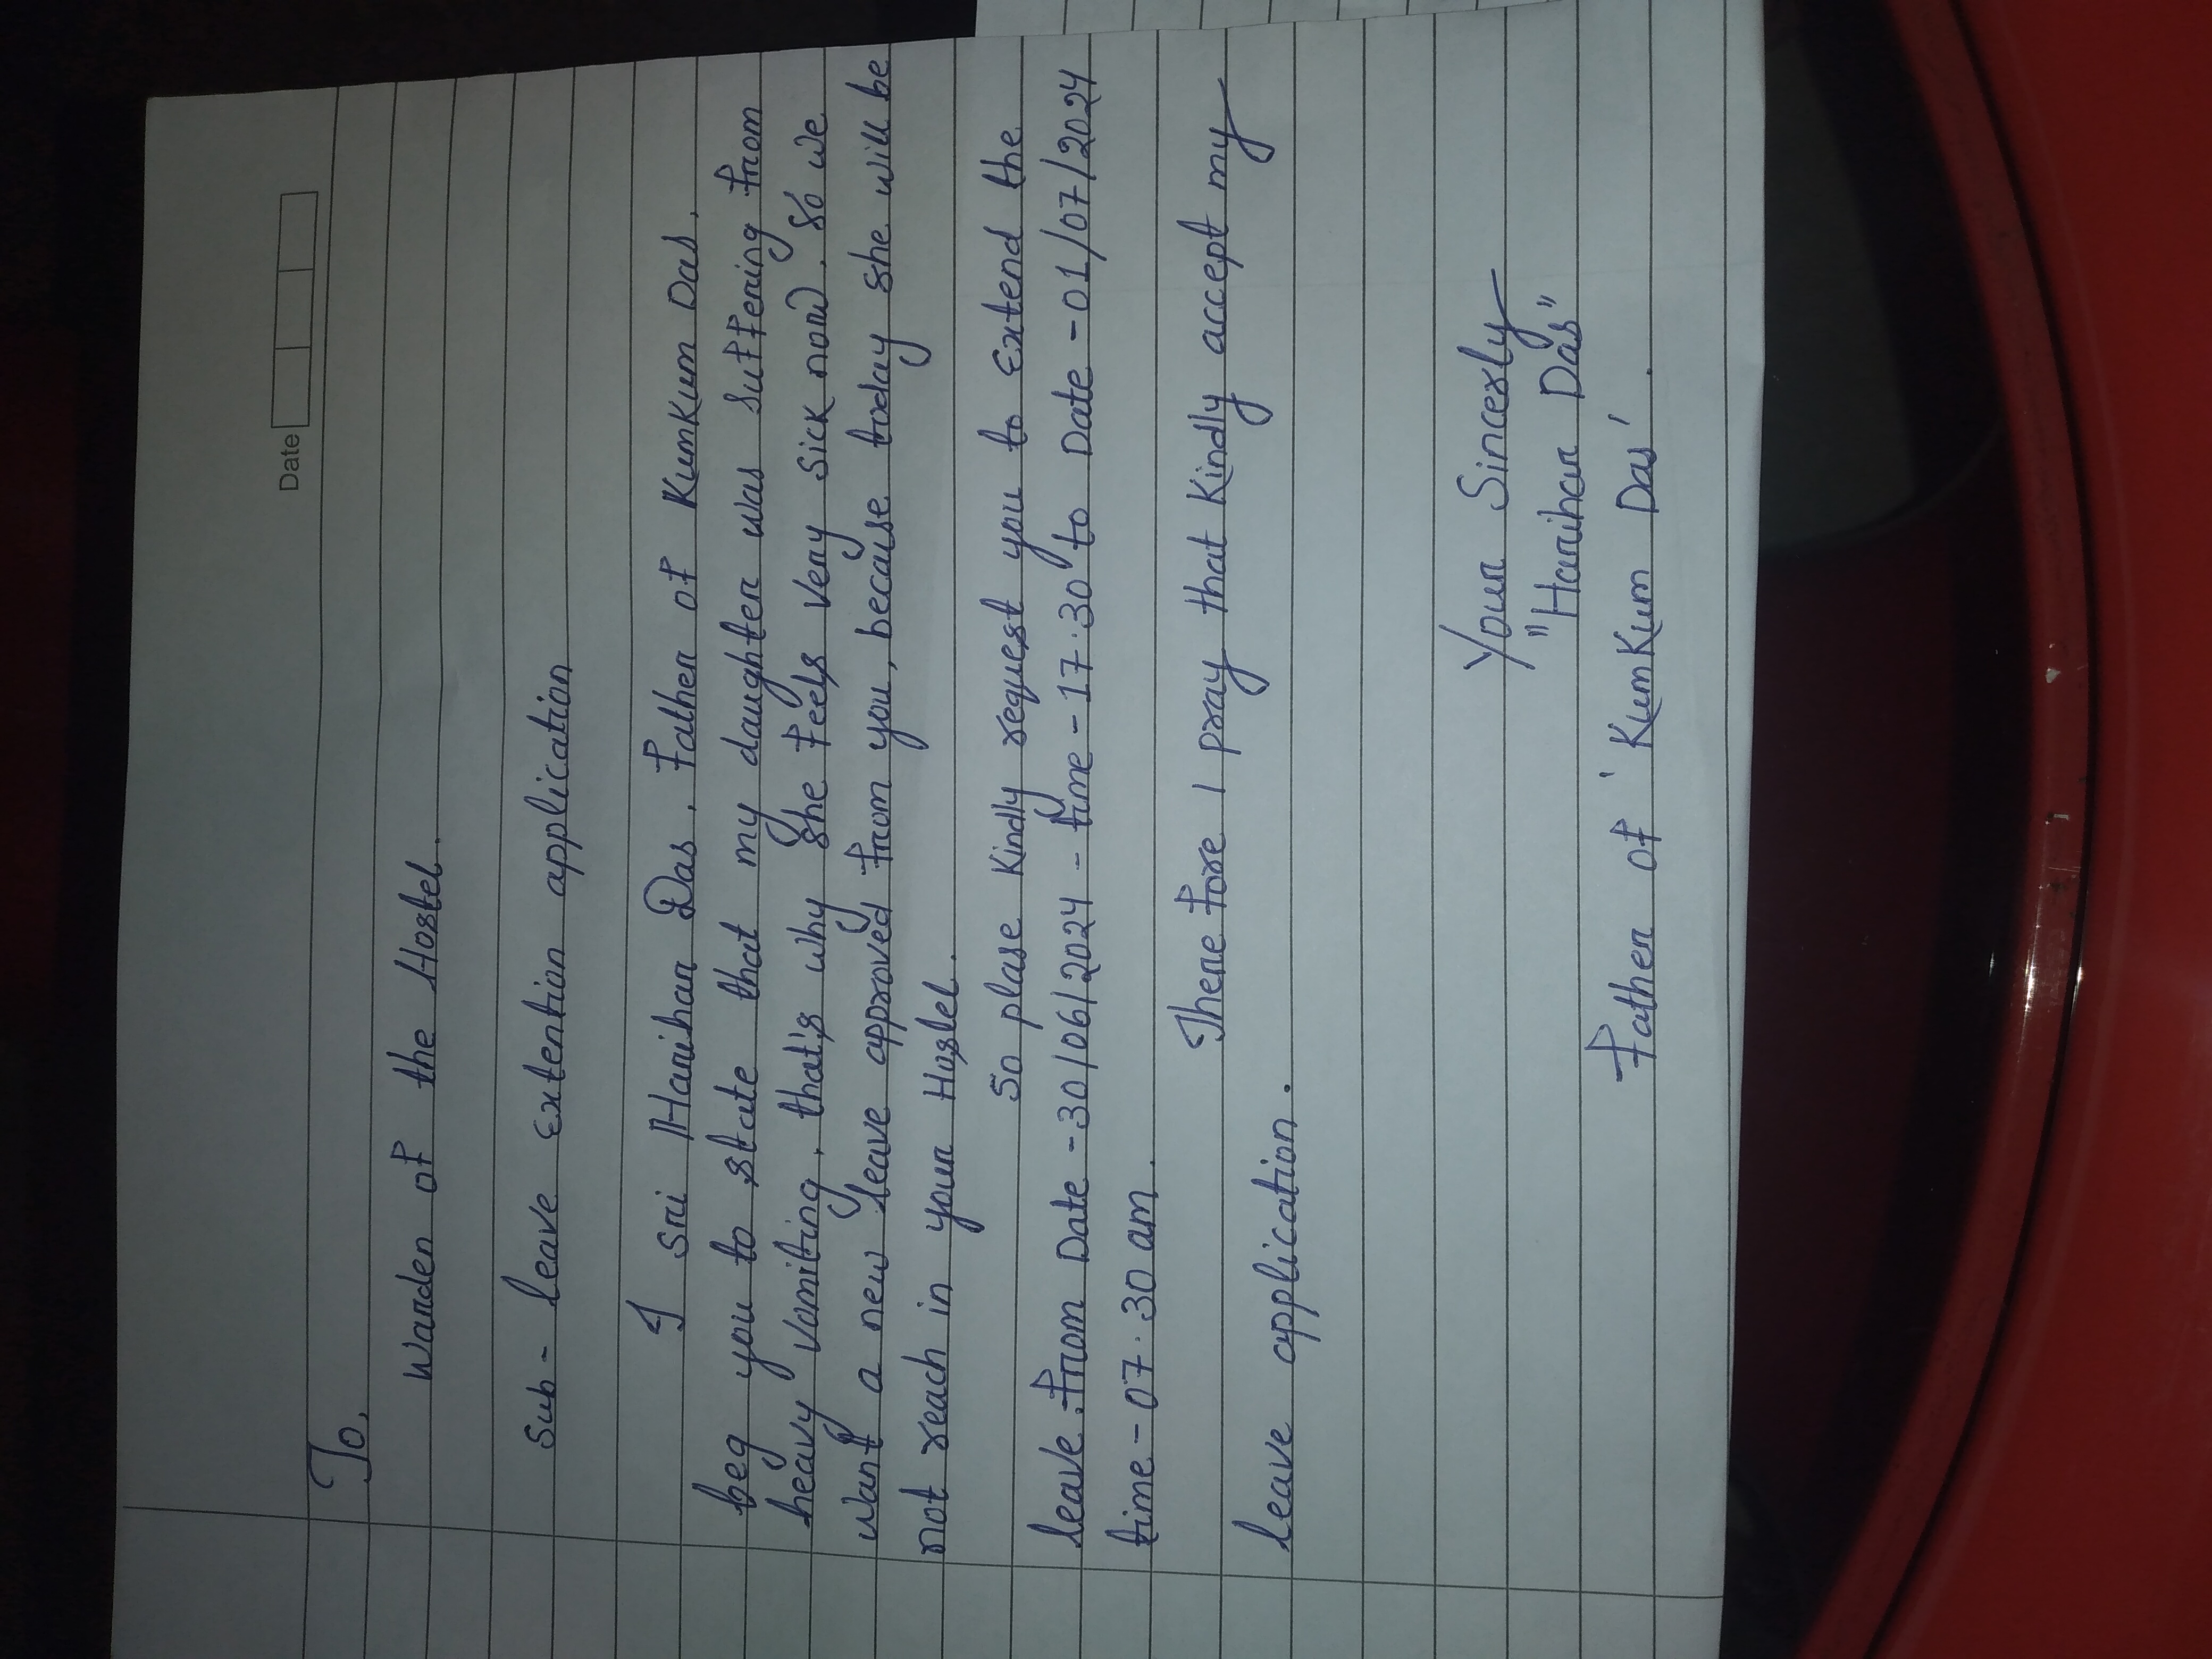 Date
To,
Warden of the Hostel.
Sub - leave extention application
I sri Harihar Das, Father of Kumkum Das,
beg you to state that my daughter was suffering from
heavy vomiting, that's why she feels very sick now. So we
want a new leave approved from you, because today she will be
not reach in your Hostel.
So plase Kindly request you to extend the
leave from Date - 30/06/2024 - time - 17.30 to Date - 01/07/2024
time - 07.30 am.
There fore I pray that Kindly accept my
leave application.
Your Sincerly
"Harihar Das"
Father of 'Kumkum Das'.